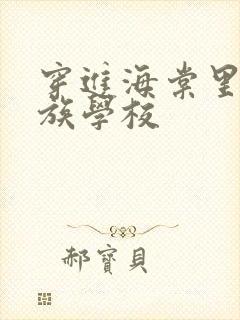 穿進海棠里
族學校
郝寶貝